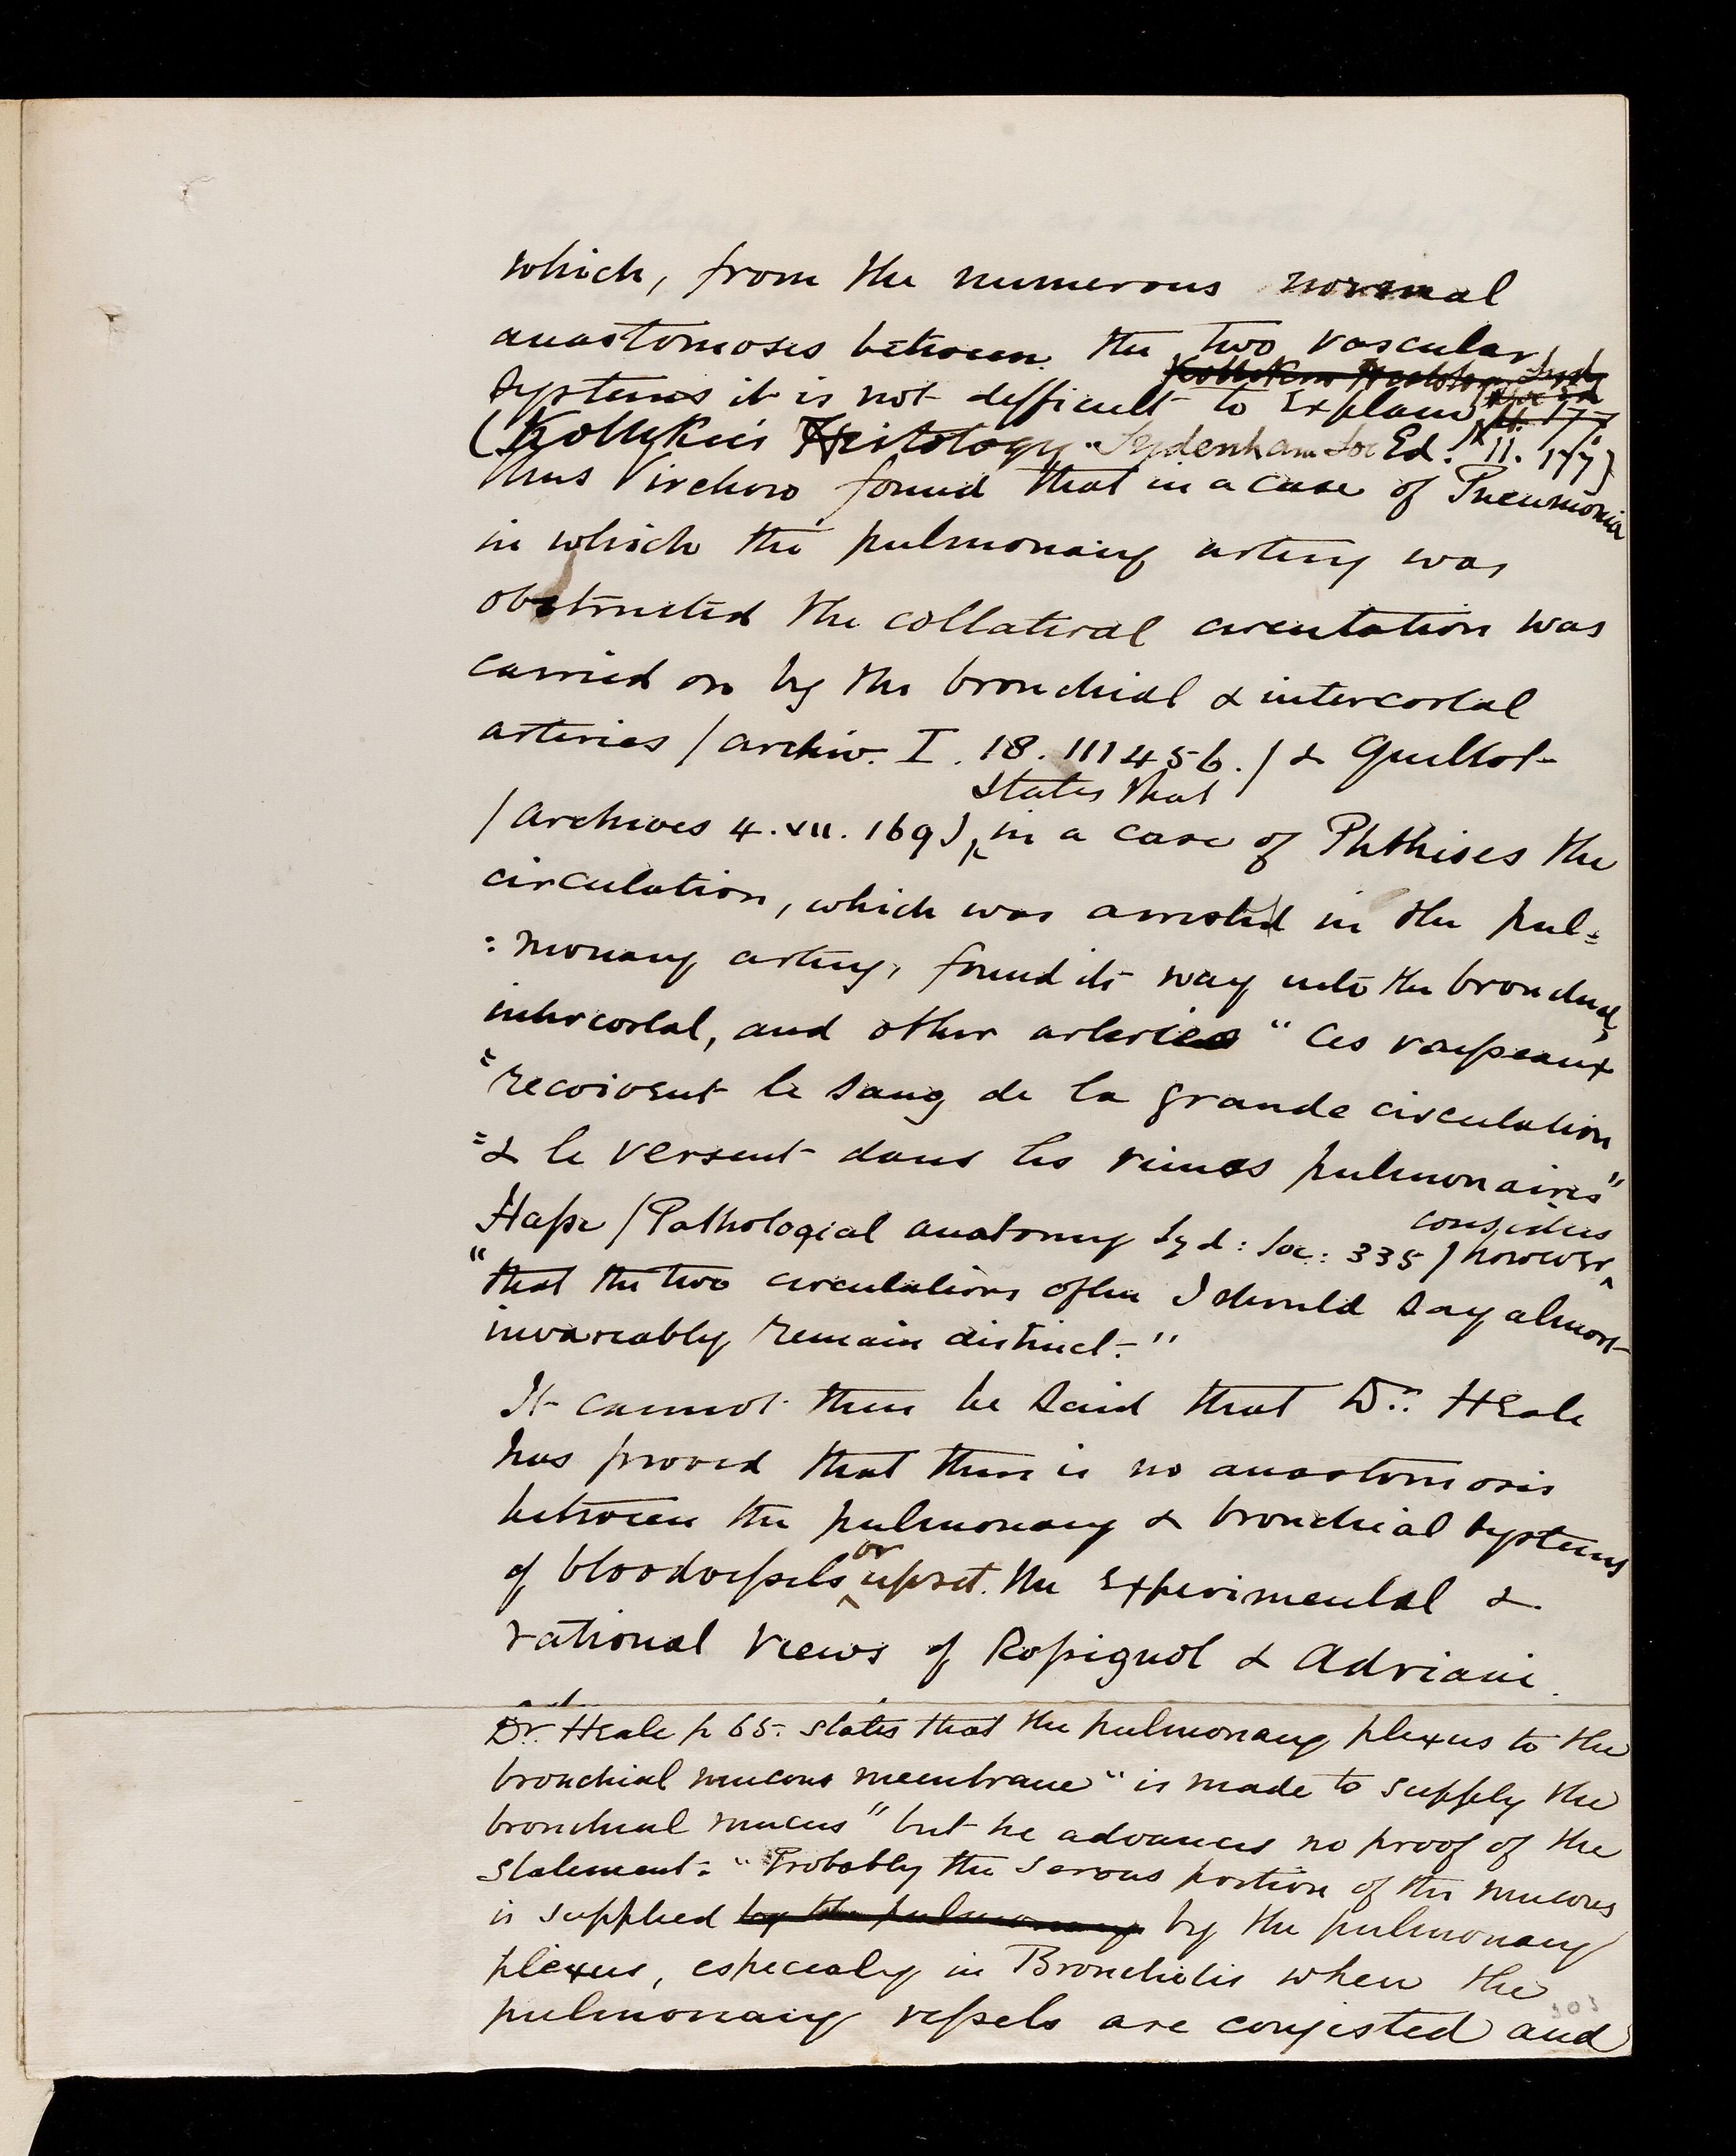 which, from the numerous normal
anastomoses between the two vascular
systems it is not difficult to explain
(Kollyker's Histology. Sydenham Soc Ed. II. 177)
thus Virchow found that in a case of Pneumonia
in which the pulmonary artery was
obstructed the collateral circulation was
carried on by the bronchial & intercostal
arteries (archiv. I. 18. 111 456.) & Guillot
states that
(archives 4. VII. 169) in a case of Phthises the
circulation, which was arrested in the pul=
:monary artery, found its way into the bronchial,
intercostal, and other arteries " Ces vaisseaux
"recoivent le sang de la grande circulation
"& le versent dans les veines pulmonaires"
considers
Hasse (Pathological anatomy Syd: Soc: 335) however
"that the two circulations often I should say almost
invareably remain distinct."
It cannot then be said that Dr. Heale
has proved that there is no anastomosis
between the pulmonary & bronchial systems
or
of bloodvessels upset. the experimental &
rational views of Rossignol & Adriani
Dr. Heale p 65. states that the pulmonary plexus to the
bronchial mucous membrane "is made to supply the
bronchial mucus" but he advances no proof of the
statement. "Probably the serous portion of the mucous
is supplied by the pulmonary by the pulmonary
plexus, especialy in Bronchitis when the
pulmonary vessels are conjested and